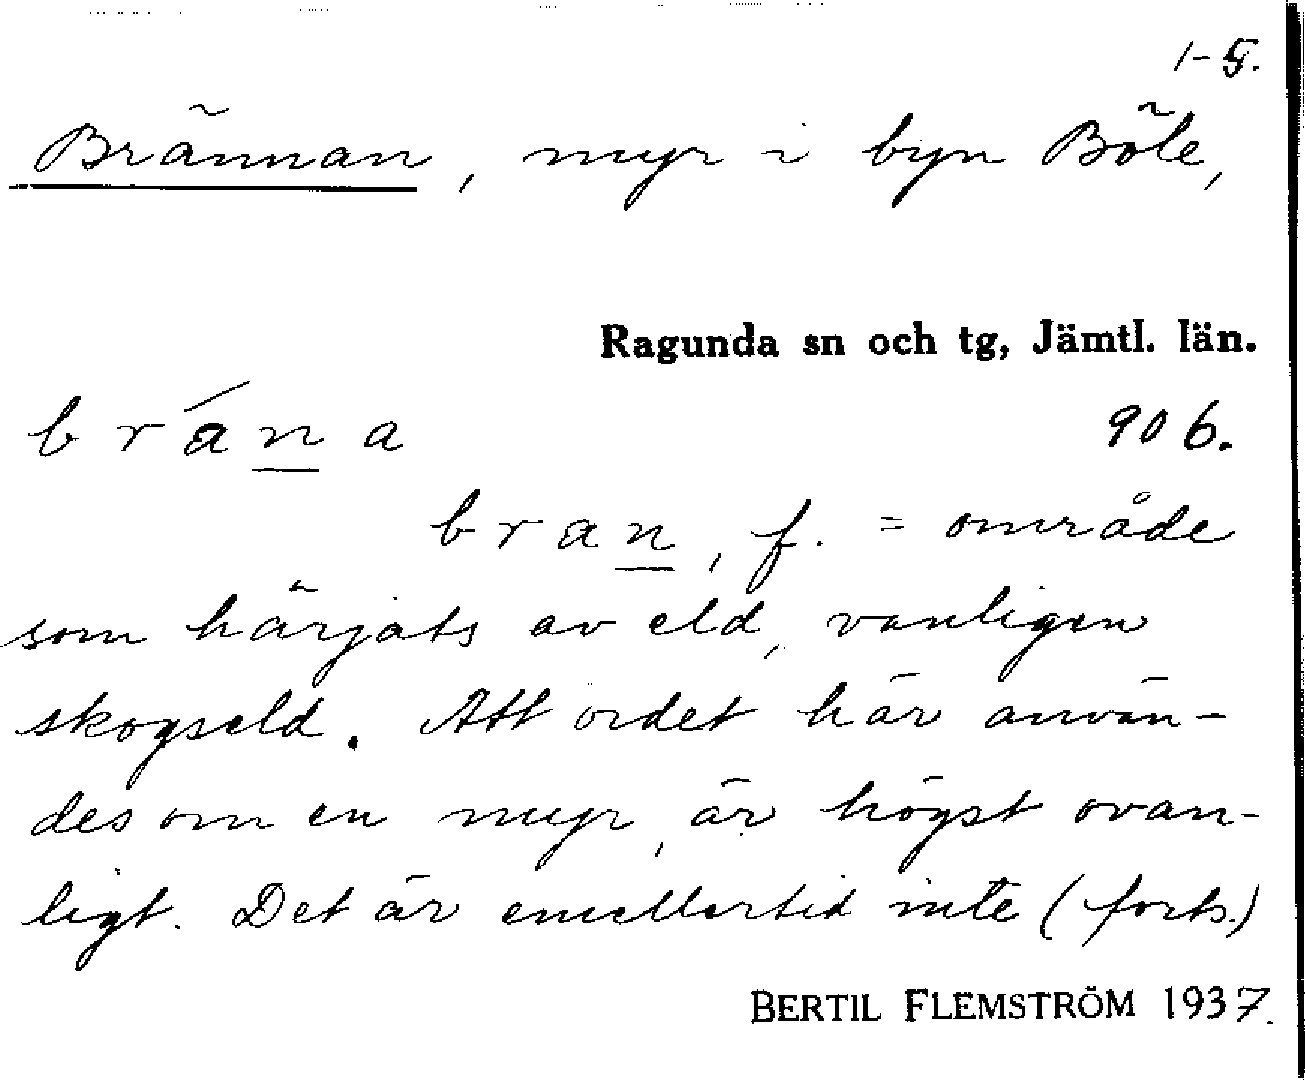 1-G.
Brännan, myr i byn Böle,
Ragunda sn och tg, Jämtl. län.
brána
906.
bran, f. = område
som härjats av eld, vanligen
skogseld. Att ordet här använ-
des om en myr, är högst ovan-
ligt. Det är emellertid inte (forts.)
BERTIL FLEMSTRÖM 1937.